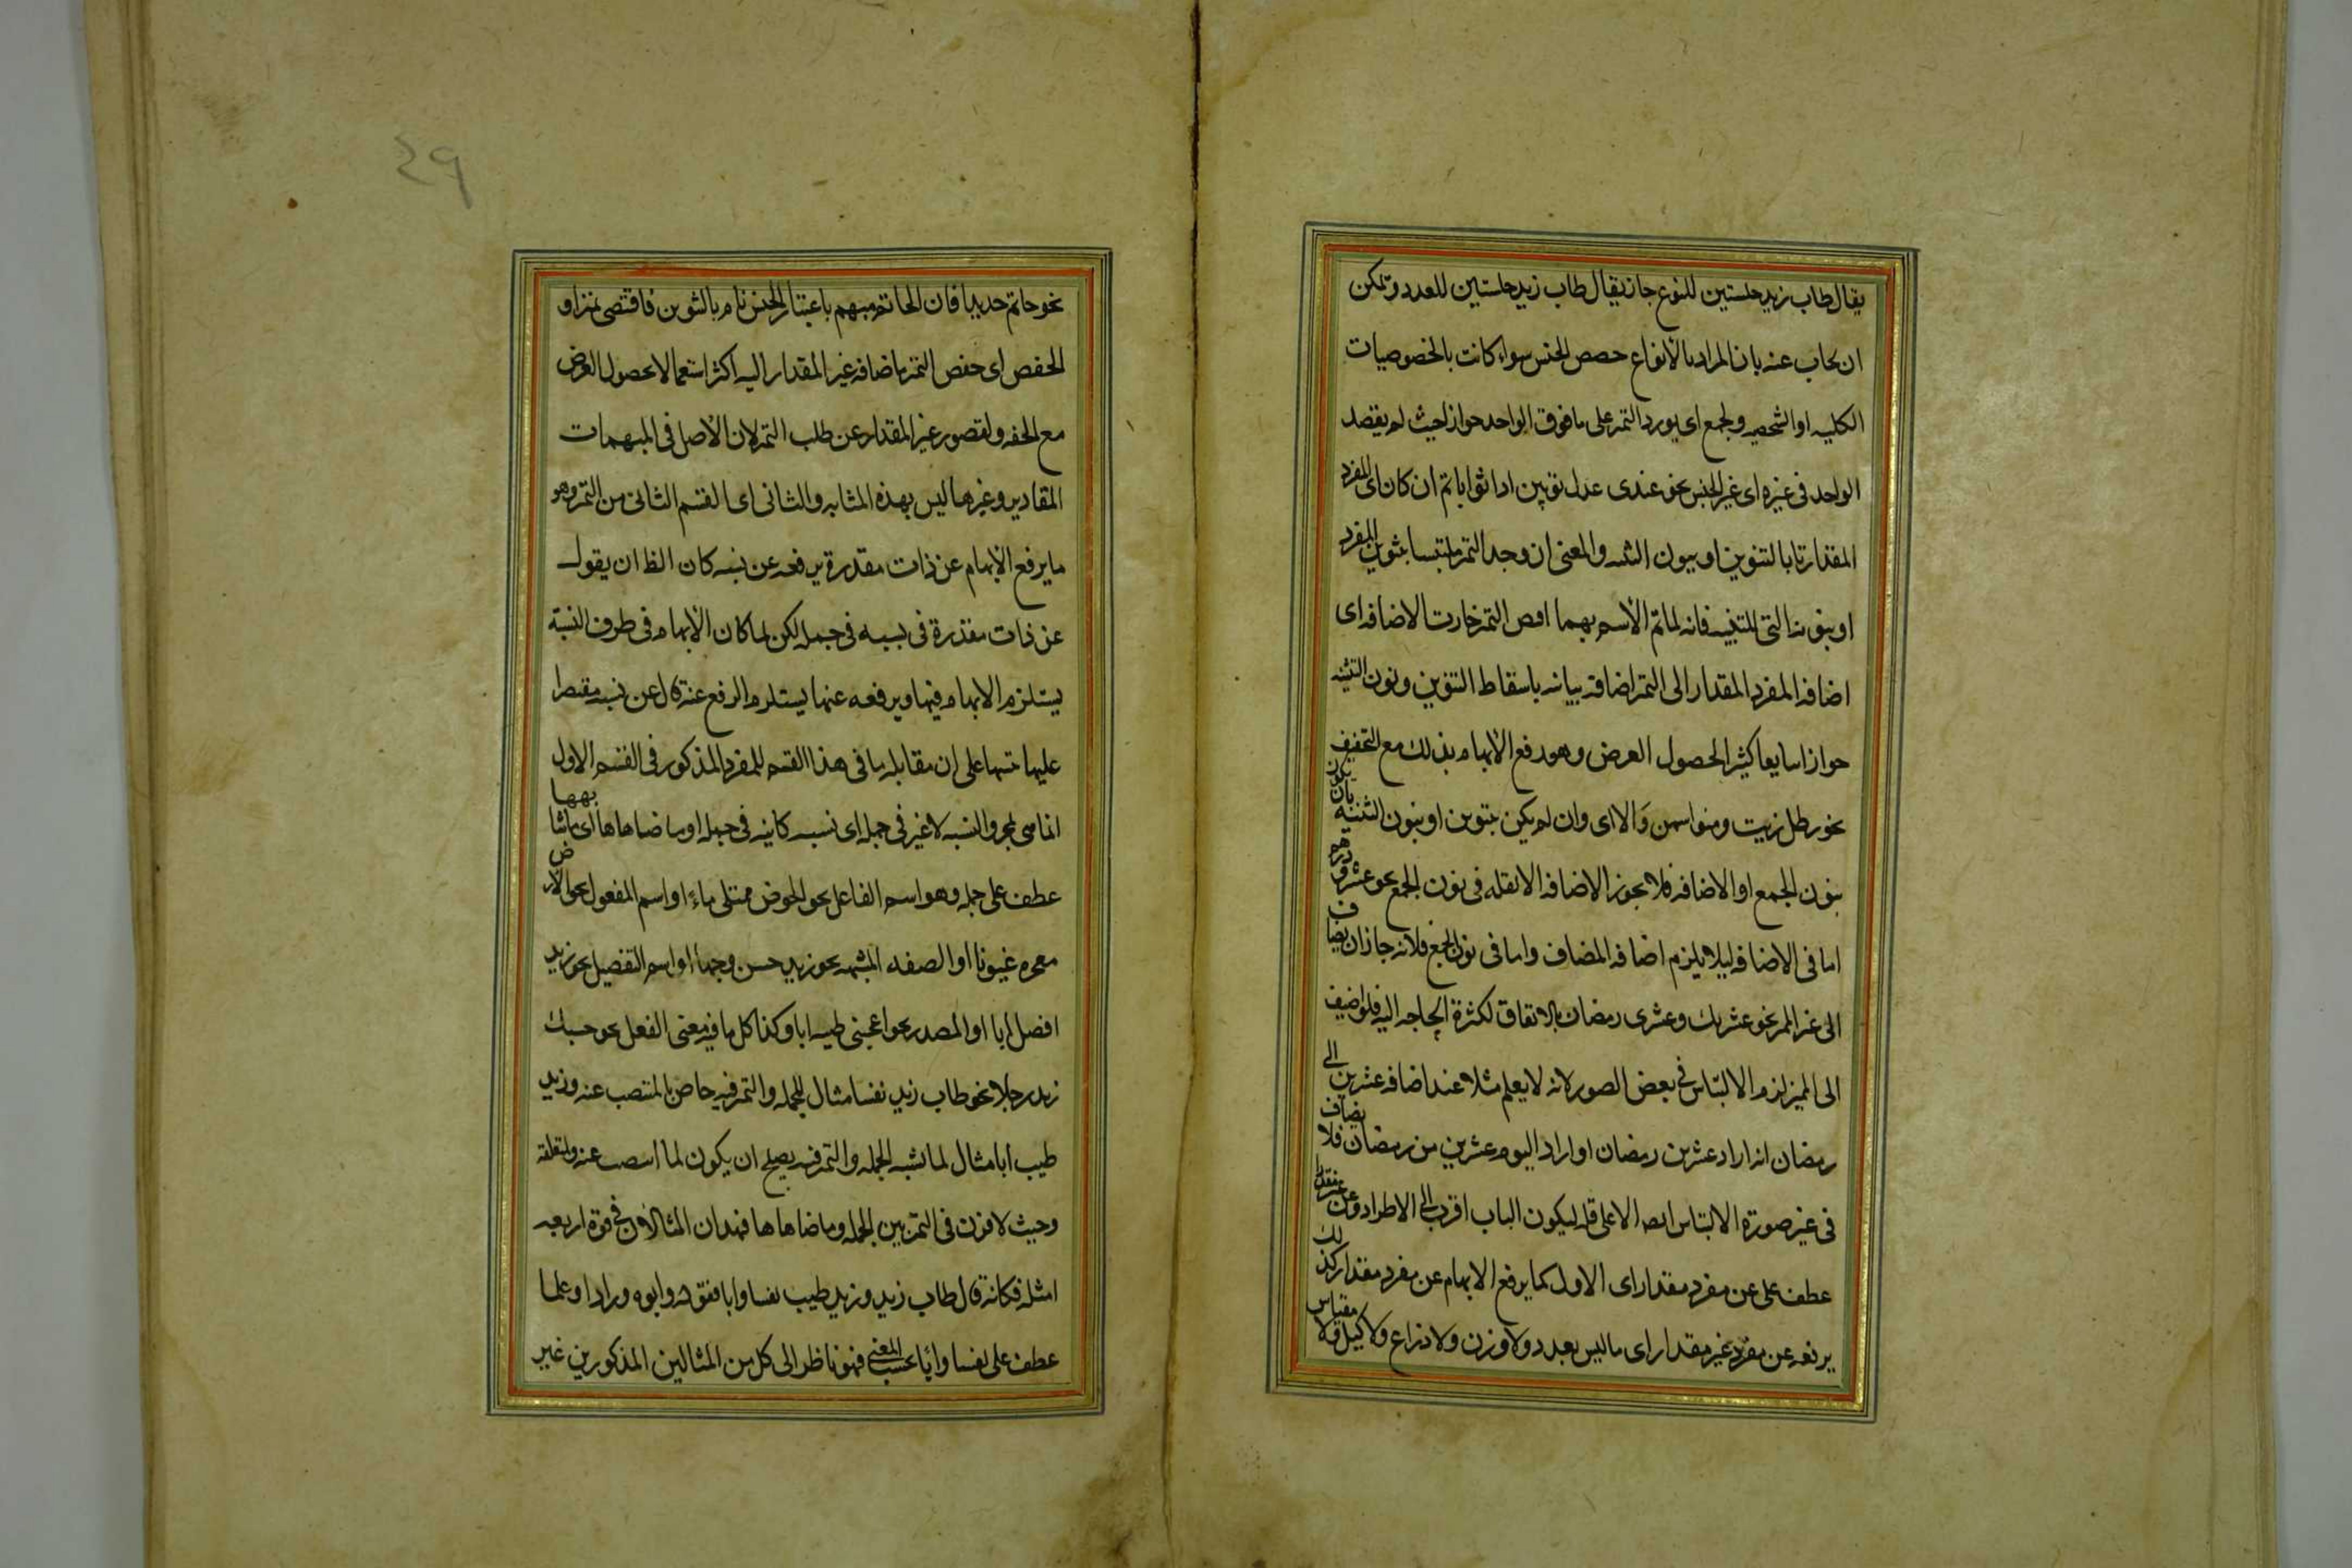 يقال طاب زيد جلستين للنوع جاز يقال طاب زيد جلستين للعدد ويمكن
ان يجاب عنه بان المراد بالانواع حصص الجنس سواء كانت بالخصوصيات
الكلية او الشخصية ويجمع اى يورد التمييز على ما فوق الواحد جوازا حيث لم يقصد
الواحد فى غيره اى غير الجنس نحو عندى عدل ثوبين او اثوابا ثم ان كان اى المفرد
المقدار تاما بالتنوين او بنون التثنية والمعنى ان وجد التمييز ملتبسا بتنوين المفرد
او بنونه التى للتثنية فانه لما تم الاسم بهما التمييز جازت الاضافة اى
اضافة المفرد المقدار الى التمييز اضافة بيانية باسقاط التنوين ونون التثنية
جوازا شايعا كثيرا لحصول الغرض وهو رفع الابهام بذلك مع التخفيف
نحو رطل زيت ومنوا سمن والا اى وان لم يكن بتنوين او بنون التثنية بان يكون
بنون الجمع او الاضافة فلا يجوز الاضافة الا بقلة فى نون الجمع نحو عشرو درهم
اما فى الاضافة ليلا يلزم اضافة المضاف واما فى نون الجمع فلانه جاز ان يضاف
الى غير المميز نحو عشريك وعشرى رمضان بالاتفاق لكثرة الحاجة اليه فلو اضيف
الى المميز لزم الالتباس فى بعض الصور لانه لا يعلم مثلا عند اضافة عشرين الى
رمضان انه اراد عشرين رمضان او اراد اليوم عشرين من رمضان فلا يضاف
فى غير صورة الالتباس ايضا الا على قلة ليكون الباب اقرب الى الاطراد وعن غير مقدار
عطف على عن مفرد مقدار اى الاول كما يرفع الابهام عن مفرد مقدار كذلك
يرفعه عن مفرد غير مقدار اى ما ليس بعدد ولا وزن ولا ذراع ولا كيل ولا مقياس
٢٩
نحو خاتم حديدا فان الخاتم مبهم باعتبار الجنس تام بالتنوين فاقتضى تمييزا و
الخفض اى خفض التمييز باضافة غير المقدار اليه اكثر استعمالا لحصول الغرض
مع الخفة ولقصور غير المقدار عن طلب التمييز لان الاصل فى المبهمات
المقادير وغيرها ليس بهذه المثابة والثانى اى القسم الثانى من التمييز وهو
ما يرفع الابهام عن ذات مقدرة يرفعه عن نسبة كان الظ ان يقول
عن ذات مقدرة فى نسبة فى جملة لكن لما كان الابهام فى طرف النسبة
يستلزم الابهام فيها ويرفعه عنها يستلزم الرفع عنه قال عن نسبة مقتصرا
عليها تنبيها على ان مقابلة ما فى هذا القسم للمفرد المذكور فى القسم الاول
انما هى بمجرد النسبة لا غير فى جملة اى نسبة كاينة فى جملة او ما ضاهاها اى ما شابهها
عطف على جملة وهو اسم الفاعل نحو الحوض ممتلى ماء او اسم المفعول نحو الارض
مفجرة عيونا او الصفة المشبهة نحو زيد حسن وجها او اسم التفضيل نحو زيد
افضل ابا او المصدر نحو اعجبنى طيبه ابا وكذا كل ما فيه معنى الفعل نحو حسبك
زيد رجلا نحو طاب زيد نفسا مثال للجملة والتمييز فيه خاص بالمنتصب عنه وزيد
طيب ابا مثال لما يشبه الجملة والتمييز فيه يصلح ان يكون لما انتصب عنه ولمتعلقه
وحيث لا فرق فى التمييز بين الجملة وما ضاهاها فهذان المثالان فى قوة اربعة
امثلة فكانه قال طاب زيد وزيد طيب نفسا وابا فقوله وابوة ودارا وعلما
عطف على نفسا وابا بحسب المعنى فهو ناظر الى كل من المثالين المذكورين غير